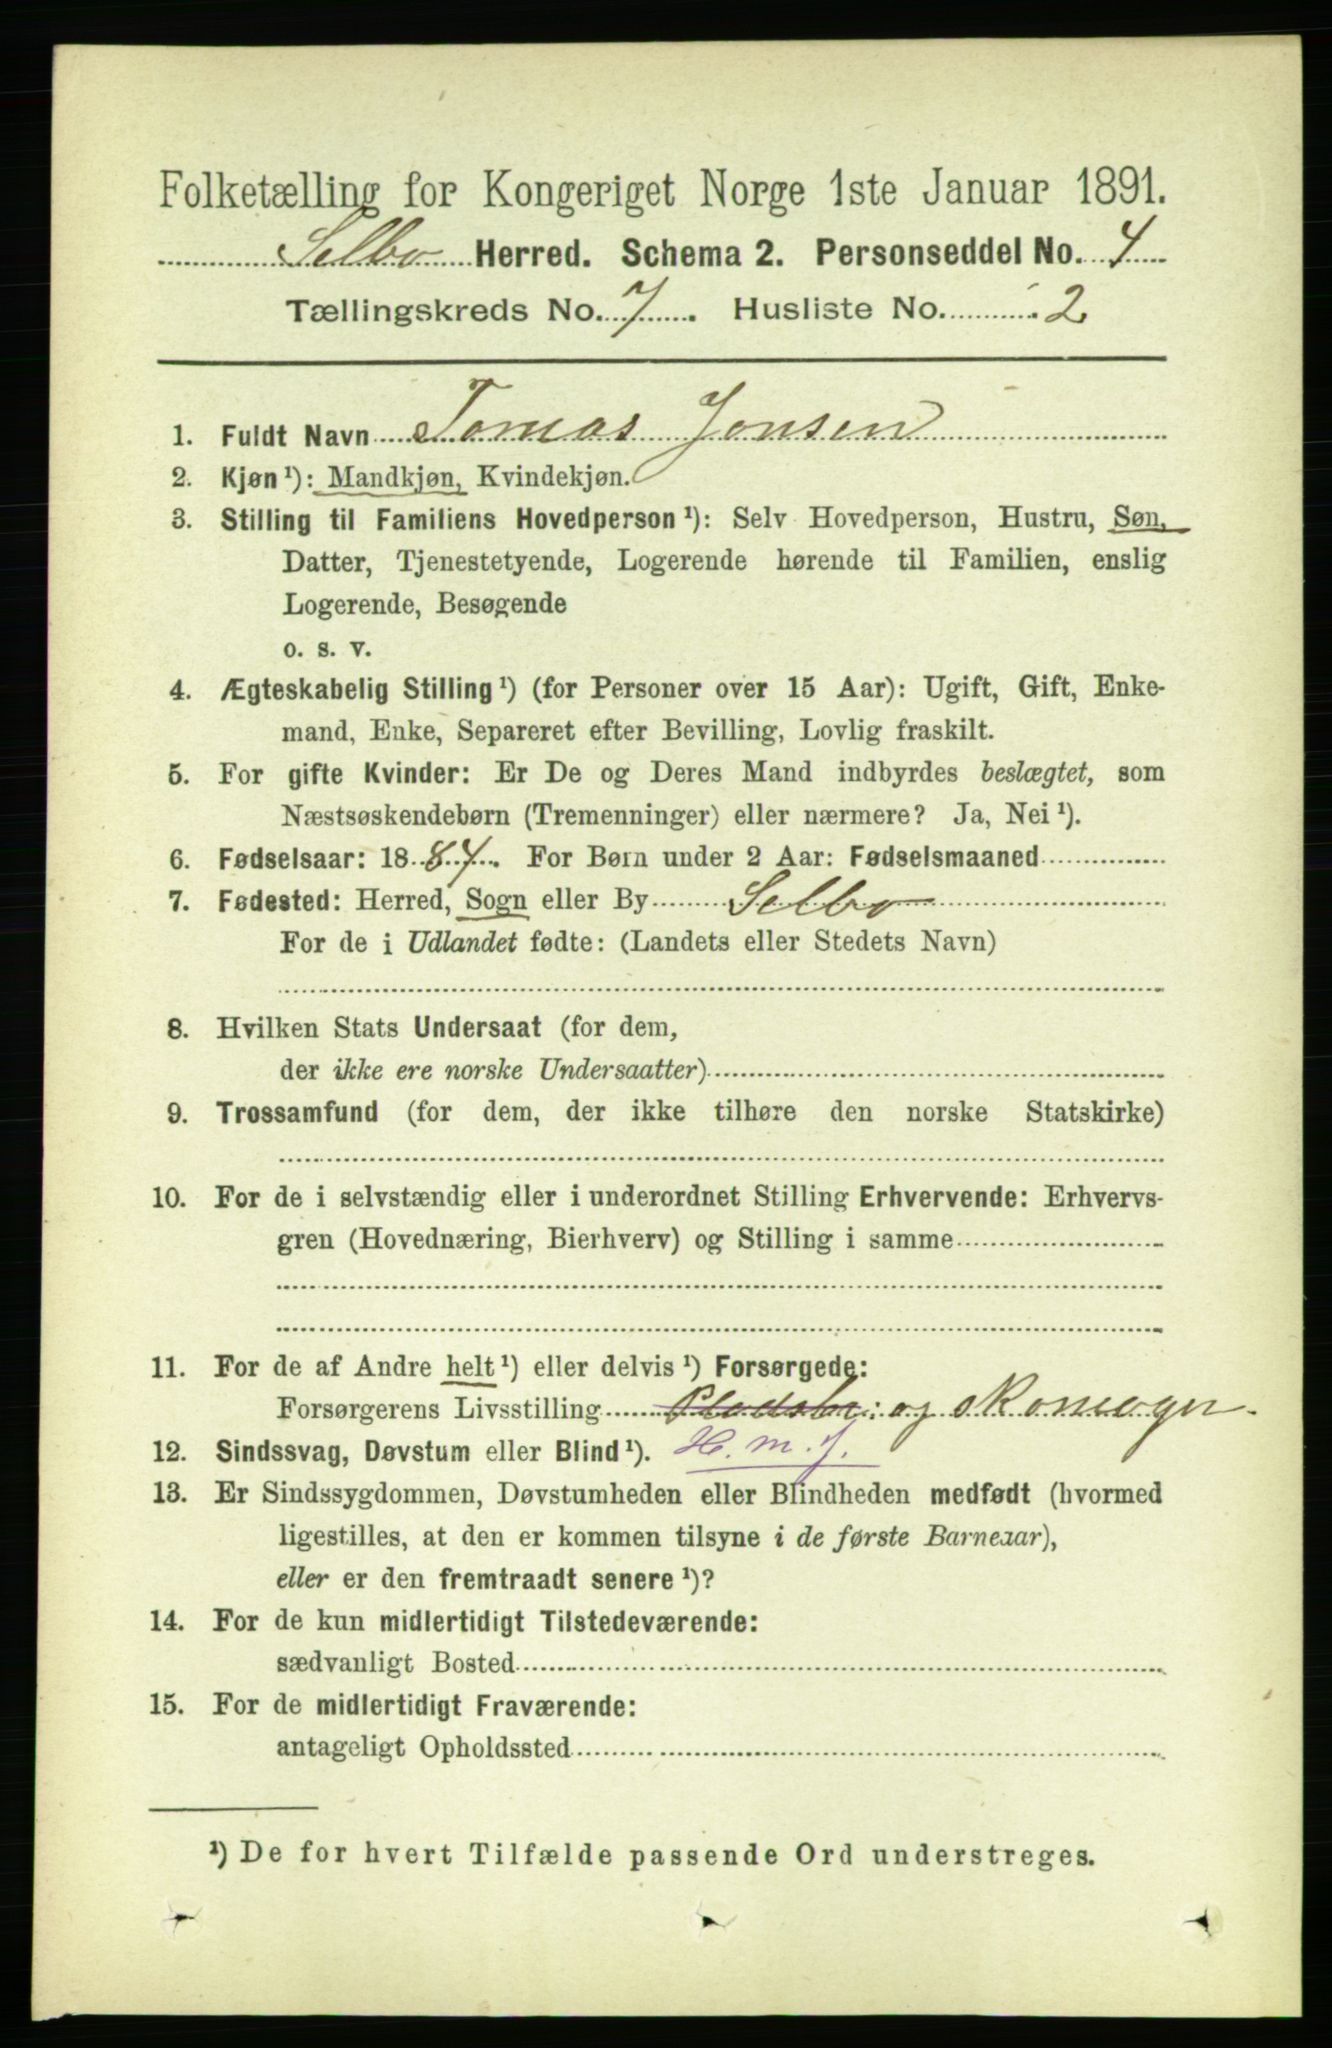 Folketælling for Kongeriget Norge 1ste Januar 1891.
Selbo Herred. Schema 2. Personseddel No. 4
Tællingskreds No. 7. Husliste No. 2
1. Fuldt Navn Tomas Jonsen
2. Kjøn ¹): Mandkjøn, Kvindekjøn.
3. Stilling til Familiens Hovedperson ¹): Selv Hovedperson, Hustru, Søn,
Datter, Tjenestetyende, Logerende hørende til Familien, enslig
Logerende, Besøgende
o. s. v.
4. Ægteskabelig Stilling ¹) (for Personer over 15 Aar): Ugift, Gift, Enke-
mand, Enke, Separeret efter Bevilling, Lovlig fraskilt.
5. For gifte Kvinder: Er De og Deres Mand indbyrdes beslægtet, som
Næstsøskendebørn (Tremenninger) eller nærmere? Ja, Nei ¹).
6. Fødselsaar: 1884. For Børn under 2 Aar: Fødselsmaaned
7. Fødested: Herred, Sogn eller By Selbo
For de i Udlandet fødte: (Landets eller Stedets Navn)
8. Hvilken Stats Undersaat (for dem,
der ikke ere norske Undersaatter)
9. Trossamfund (for dem, der ikke tilhøre den norske Statskirke)
10. For de i selvstændig eller i underordnet Stilling Erhvervende: Erhvervs-
gren (Hovednæring, Bierhverv) og Stilling i samme
11. For de af Andre helt ¹) eller delvis ¹) Forsørgede:
Forsørgerens Livsstilling Pladsbr: og skomager.
12. Sindssvag, Døvstum eller Blind ¹). H. m. J.
13. Er Sindssygdommen, Døvstumheden eller Blindheden medfødt (hvormed
ligestilles, at den er kommen tilsyne i de første Barneaar),
eller er den fremtraadt senere ¹)?
14. For de kun midlertidigt Tilstedeværende:
sædvanligt Bosted
15. For de midlertidigt Fraværende:
antageligt Opholdssted
¹) De for hvert Tilfælde passende Ord understreges.